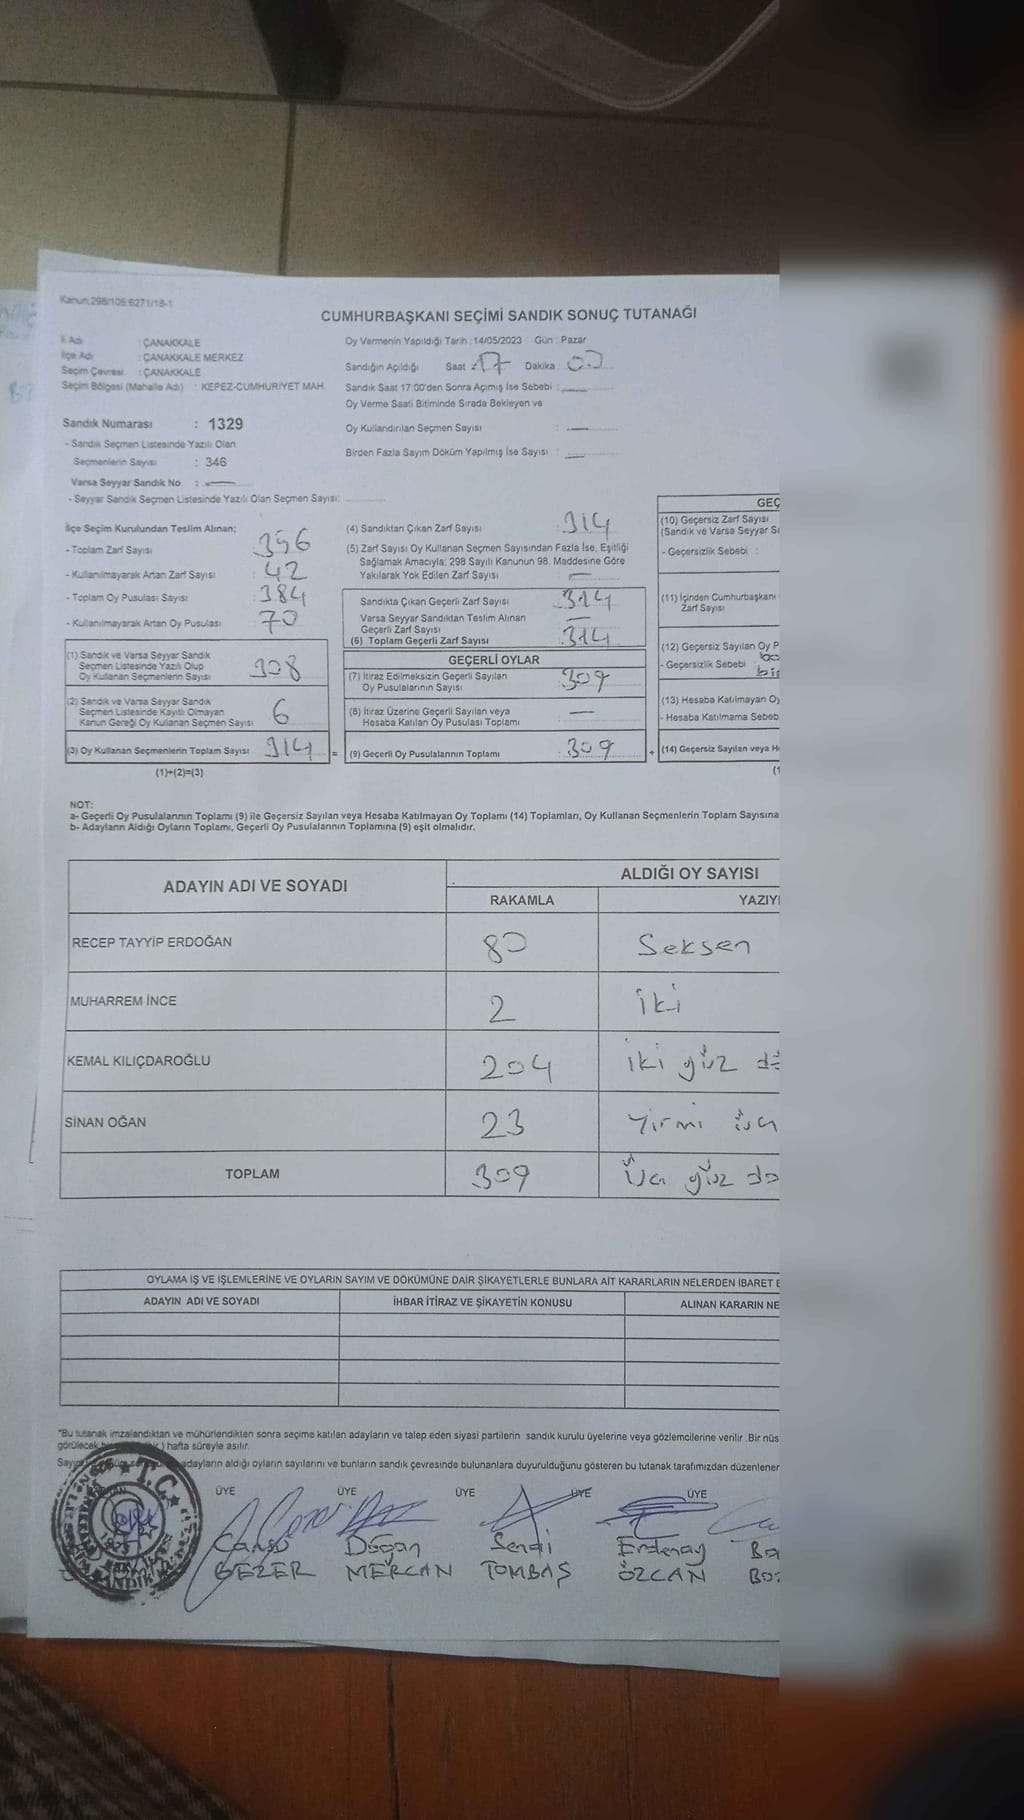 Kanun:298/105:6271/18-1
CUMHURBAŞKANI SEÇİMİ SANDIK SONUÇ TUTANAĞI
İl Adı : ÇANAKKALE
İlçe Adı : ÇANAKKALE MERKEZ
Seçim Çevresi : ÇANAKKALE
Seçim Bölgesi (Mahalle Adı) : KEPEZ-CUMHURİYET MAH.
Oy Vermenin Yapıldığı Tarih : 14/05/2023 Gün : Pazar
Sandığın Açıldığı Saat : 17 Dakika : 00
Sandık Saat 17:00'den Sonra Açımış İse Sebebi :
Oy Verme Saati Bitiminde Sırada Bekleyen ve
Oy Kullandırılan Seçmen Sayısı :
Birden Fazla Sayım Döküm Yapılmış İse Sayısı :
Sandık Numarası : 1329
- Sandık Seçmen Listesinde Yazılı Olan
Seçmenlerin Sayısı : 346
Varsa Seyyar Sandık No :
- Seyyar Sandık Seçmen Listesinde Yazılı Olan Seçmen Sayısı:
İlçe Seçim Kurulundan Teslim Alınan;
- Toplam Zarf Sayısı : 356
- Kullanılmayarak Artan Zarf Sayısı : 42
- Toplam Oy Pusulası Sayısı : 384
- Kullanılmayarak Artan Oy Pusulası : 70
(1) Sandık ve Varsa Seyyar Sandık
Seçmen Listesinde Yazılı Olup
Oy Kullanan Seçmenlerin Sayısı 308
(2) Sandık ve Varsa Seyyar Sandık
Seçmen Listesinde Kayıtlı Olmayan
Kanun Gereği Oy Kullanan Seçmen Sayısı 6
(3) Oy Kullanan Seçmenlerin Toplam Sayısı 314 =
(1)+(2)=(3)
(4) Sandıktan Çıkan Zarf Sayısı : 314
(5) Zarf Sayısı Oy Kullanan Seçmen Sayısından Fazla İse, Eşitliği
Sağlamak Amacıyla; 298 Sayılı Kanunun 98. Maddesine Göre
Yakılarak Yok Edilen Zarf Sayısı :
Sandıkta Çıkan Geçerli Zarf Sayısı : 314
Varsa Seyyar Sandıktan Teslim Alınan
Geçerli Zarf Sayısı
(6) Toplam Geçerli Zarf Sayısı : 314
GEÇERLİ OYLAR
(7) İtiraz Edilmeksizin Geçerli Sayılan
Oy Pusulalarının Sayısı : 309
(8) İtiraz Üzerine Geçerli Sayılan veya
Hesaba Katılan Oy Pusulası Toplamı :
(9) Geçerli Oy Pusulalarının Toplamı : 309 +
GEÇ
(10) Geçersiz Zarf Sayısı
(Sandık ve Varsa Seyyar Sa
- Geçersizlik Sebebi :
(11) İçinden Cumhurbaşkanı
Zarf Sayısı
(12) Geçersiz Sayılan Oy P
- Geçersizlik Sebebi
(13) Hesaba Katılmayan Oy
- Hesaba Katılmama Sebeb
(14) Geçersiz Sayılan veya H
(1
NOT:
a- Geçerli Oy Pusulalarının Toplamı (9) ile Geçersiz Sayılan veya Hesaba Katılmayan Oy Toplamı (14) Toplamları, Oy Kullanan Seçmenlerin Toplam Sayısına
b- Adayların Aldığı Oyların Toplamı, Geçerli Oy Pusulalarının Toplamına (9) eşit olmalıdır.
ADAYIN ADI VE SOYADI ALDIĞI OY SAYISI
RAKAMLA YAZIYI
RECEP TAYYİP ERDOĞAN 80 Seksen
MUHARREM İNCE 2 iki
KEMAL KILIÇDAROĞLU 204 iki yüz dö
SİNAN OĞAN 23 Yirmi üç
TOPLAM 309 Üç yüz do
OYLAMA İŞ VE İŞLEMLERİNE VE OYLARIN SAYIM VE DÖKÜMÜNE DAİR ŞİKAYETLERLE BUNLARA AİT KARARLARIN NELERDEN İBARET
ADAYIN ADI VE SOYADI İHBAR İTİRAZ VE ŞİKAYETİN KONUSU ALINAN KARARIN NE
"Bu tutanak imzalandıktan ve mühürlendikten sonra seçime katılan adayların ve talep eden siyasi partilerin sandık kurulu üyelerine veya gözlemcilerine verilir .Bir nüs
görülecek ) hafta süreyle asılır.
adayların aldığı oyların sayılarını ve bunların sandık çevresinde bulunanlara duyurulduğunu gösteren bu tutanak tarafımızdan düzenlener
ÜYE ÜYE ÜYE ÜYE ÜYE
T.C.
Cansu Doğan Serdi Erdenay
GEZER MERCAN TOMBAŞ ÖZCAN BOZ